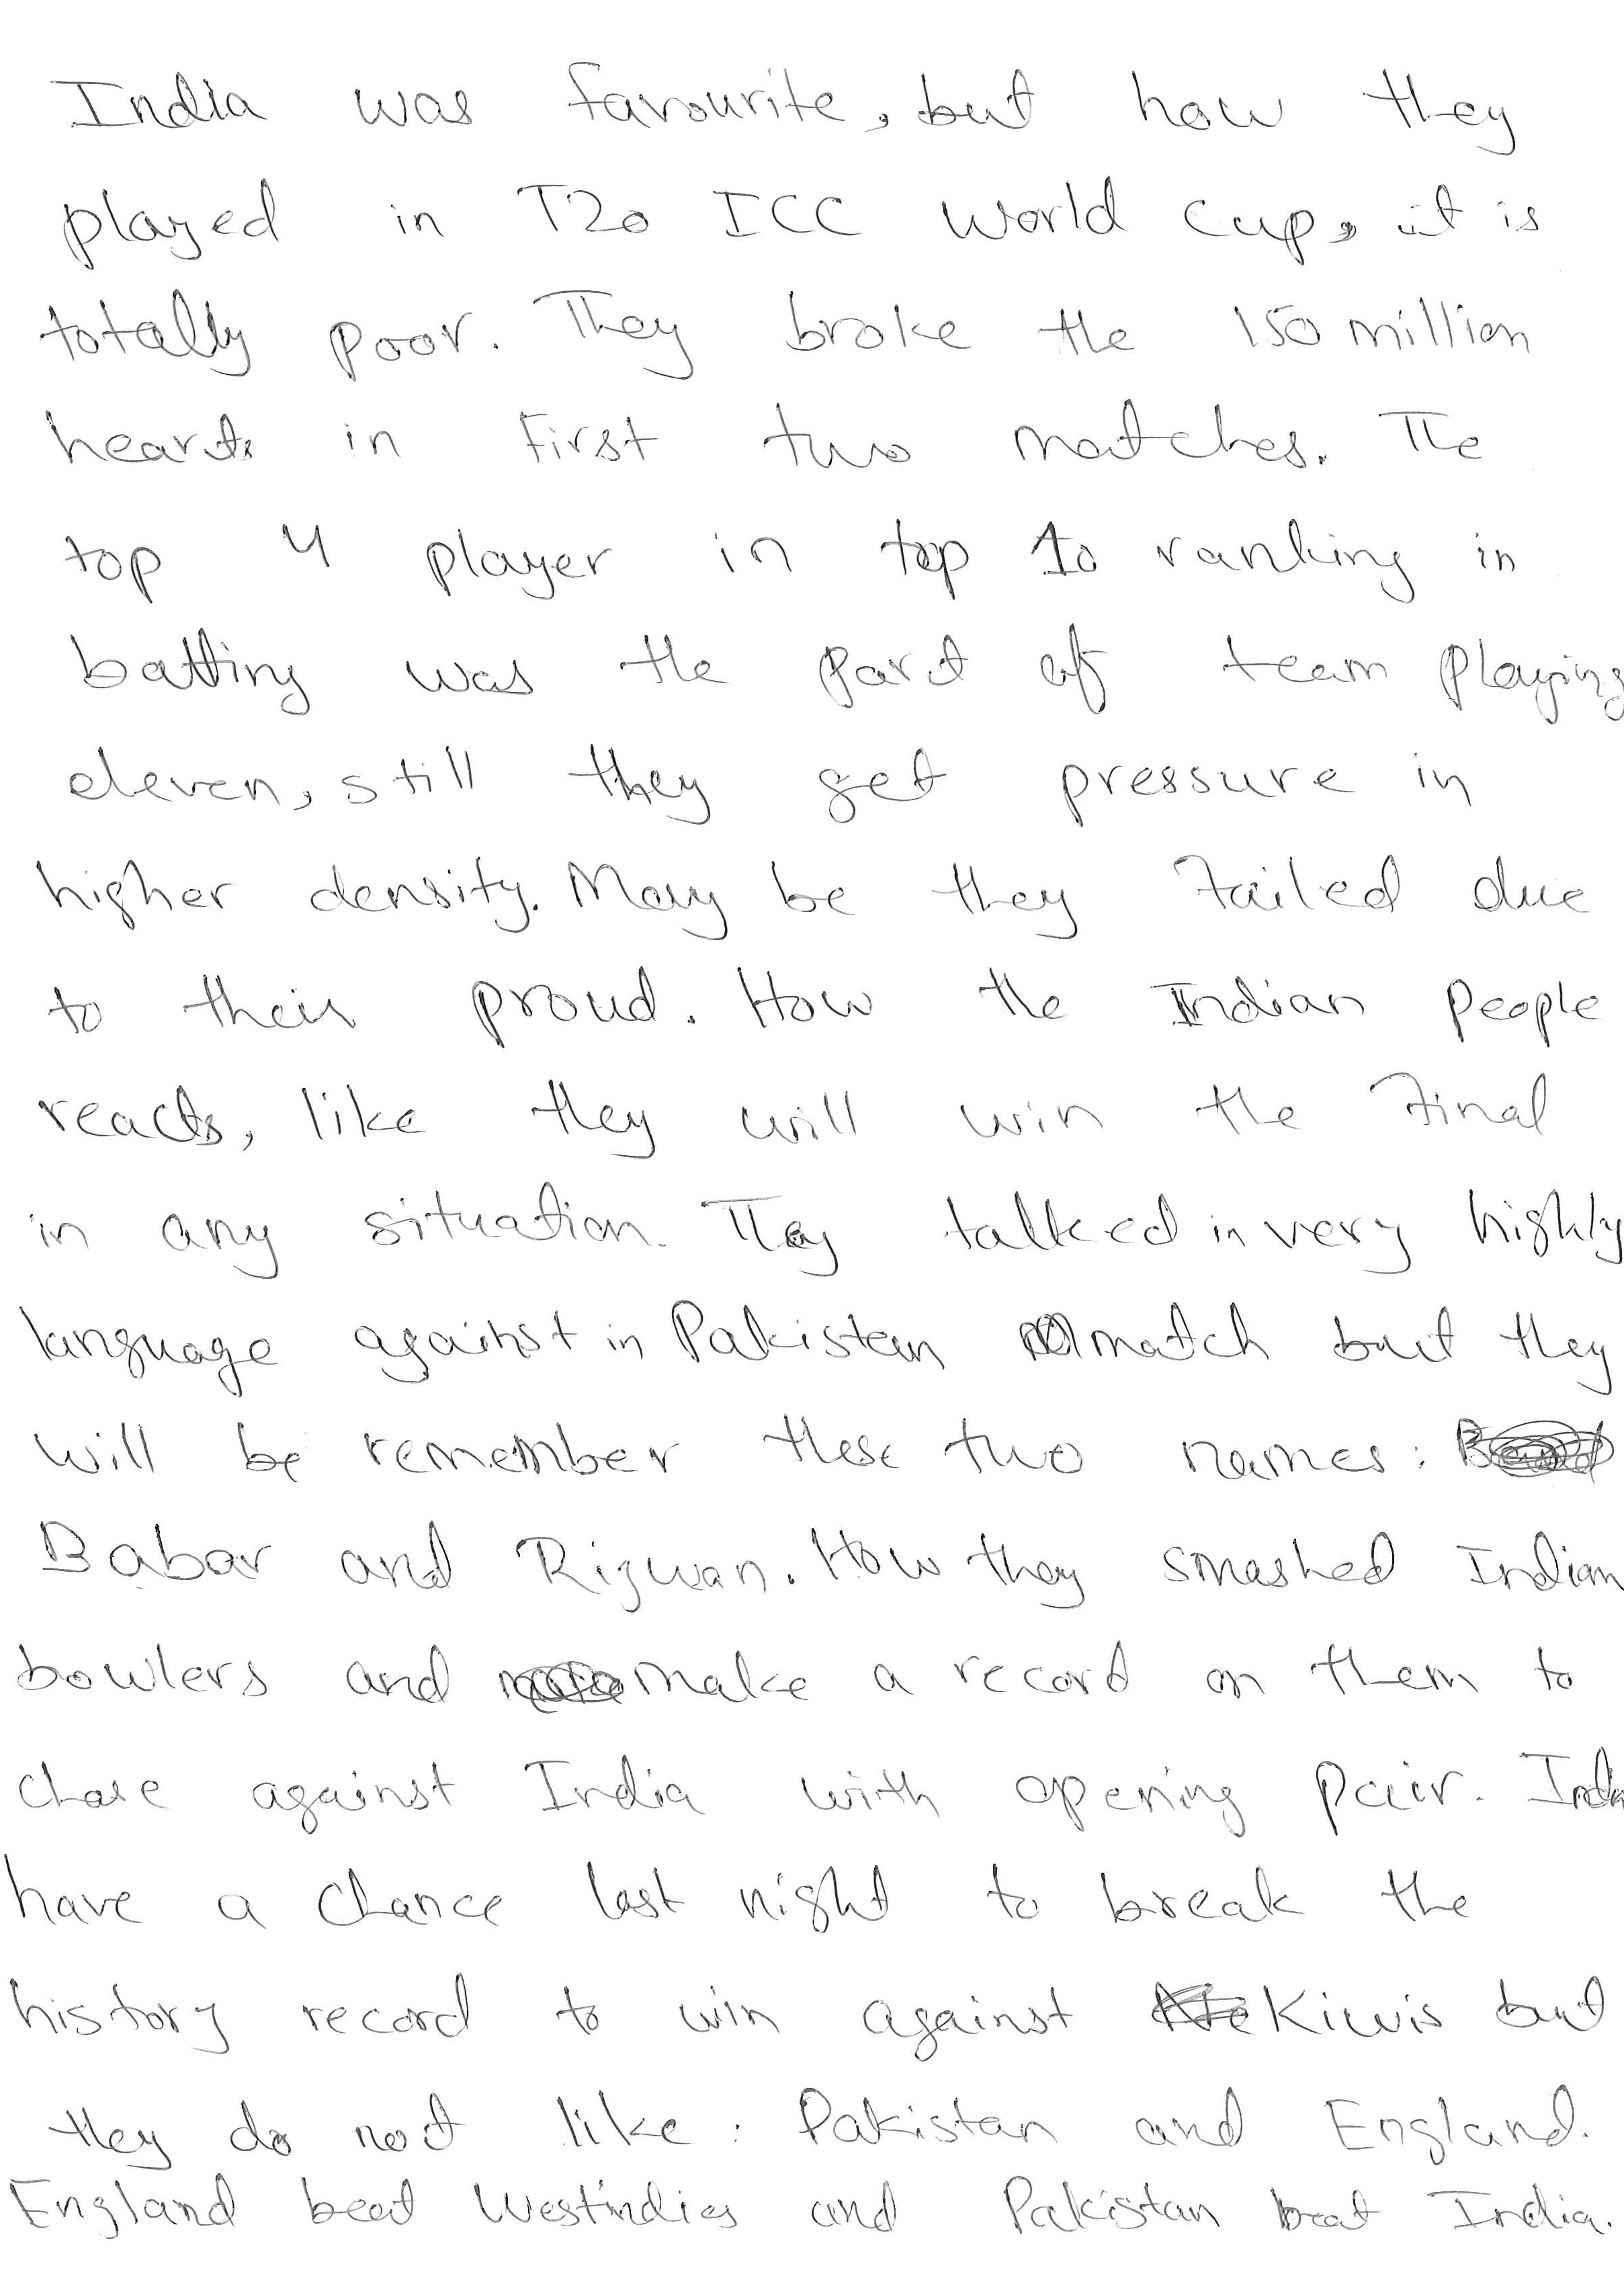 India was favourite, but how they
played in T20 ICC World Cup, it is
totally poor. They broke the 150 million
hearts in first two matches. The
top 4 player in top 10 ranking in
batting was the part of team playing
eleven, still they get pressure in
higher density. May be they failed due
to their proud. How the Indian People
reacts, like they will win the Final
in any situation. They talked in very highly
language against in Pakistan match but they
will be remember these two names:
Babar and Rizwan. How they smashed Indian
bowlers and make a record on them to
chase against India with opening pair. India
have a chance last night to break the
history record to win against Kiwis but
they do not like: Pakistan and England.
England beat Westindies and Pakistan beat India.